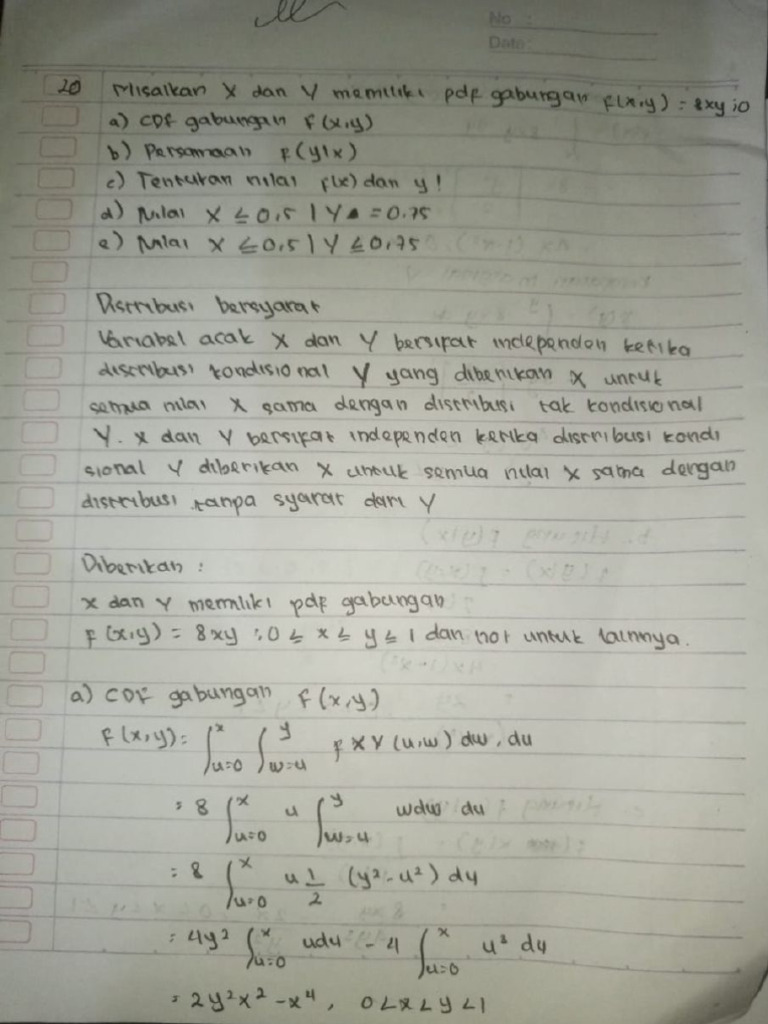 No :
Date:
20 Misalkan X dan Y memiliki pdf gabungan f(x,y) = 8xy ; 0
a) CDF gabungan F(x,y)
b) Persamaan f(y|x)
c) Tentukan nilai f(x) dan y!
d) Nilai X ≤ 0,5 | Y = 0.75
e) Nilai X ≤ 0,5 | Y ≤ 0,75
Distribusi bersyarat
Variabel acak X dan Y bersifat independen ketika
distribusi kondisional Y yang diberikan X untuk
semua nilai X sama dengan distribusi tak kondisional
Y. X dan Y bersifat independen ketika distribusi kondi
sional Y diberikan X untuk semua nilai X sama dengan
distribusi tanpa syarat dari Y
Diberikan :
X dan Y memiliki pdf gabungan
f(x,y) = 8xy ; 0 ≤ x ≤ y ≤ 1 dan nol untuk lainnya.
a) CDF gabungan F(x,y)
F(x,y) = ∫_{u=0}^{x} ∫_{w=u}^{y} f XY (u,w) dw, du
= 8 ∫_{u=0}^{x} u ∫_{w=u}^{y} w dw du
= 8 ∫_{u=0}^{x} u 1/2 (y² - u²) du
= 4y² ∫_{u=0}^{x} u du - 4 ∫_{u=0}^{x} u³ du
= 2y²x² - x⁴, 0 < x < y < 1